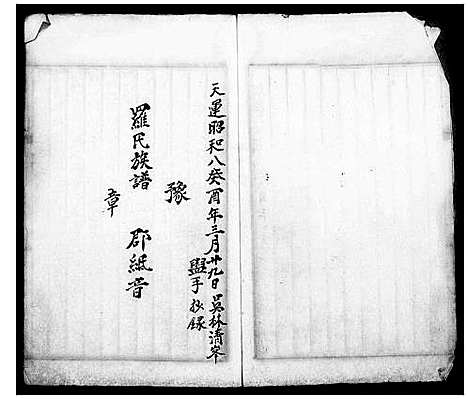 天運昭和八癸酉年三月廿九日 吳林清岑
盥手抄錄
豫
羅氏族譜 郡紙音
章